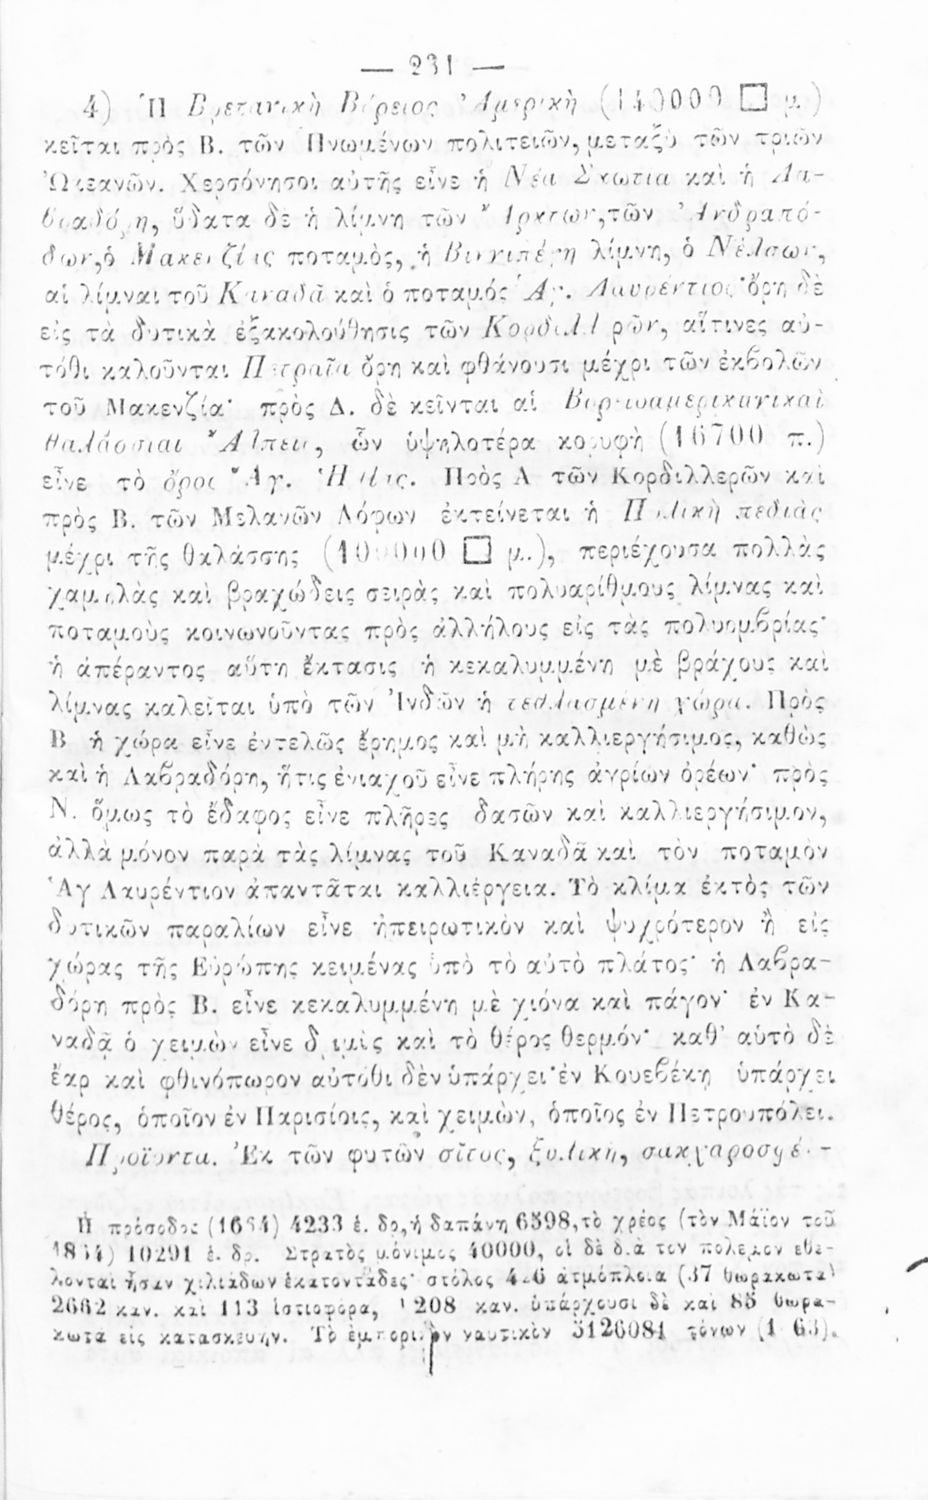 — 231 —
4) Ἡ Βρετανικὴ Βόρειος Ἀμερικὴ (140000 □ μ.)
κεῖται πρὸς Β. τῶν Ἡνωμένων πολιτειῶν, μεταξὺ τῶν τριῶν
Ὠκεανῶν. Χερσόνησοι αὐτῆς εἶνε ἡ Νέα Σκωτία καὶ ἡ Λα-
βραδόρη, ὕδατα δὲ ἡ λίμνη τῶν Ἄρκτων, τῶν Ἀνδραπό-
δων, ὁ Μακενζίας ποταμὸς, ἡ Βιννιπέγη λίμνη, ὁ Νέλσων,
αἱ λίμναι τοῦ Καναδᾶ καὶ ὁ ποταμός Ἁγ. Λαυρέντιος· ὄρη δὲ
εἰς τὰ δυτικὰ ἐξακολούθησις τῶν Κορδιλλιρῶν, αἵτινες αὐ-
τόθι καλοῦνται Πετραῖα ὄρη καὶ φθάνουσι μέχρι τῶν ἐκβολῶν
τοῦ Μακενζία· πρὸς Δ. δὲ κεῖνται αἱ Βορειοαμερικανικαὶ
θαλάσσιαι Ἄλπεις, ὧν ὑψηλοτέρα κορυφὴ (16700 π.)
εἶνε τὸ ὄρος Ἅγ. Ἠλίας. Πρὸς Α τῶν Κορδιλλερῶν καὶ
πρὸς Β. τῶν Μελανῶν Λόφων ἐκτείνεται ἡ Πολικὴ πεδιὰς
μέχρι τῆς θαλάσσης □ μ.), περιέχουσα πολλὰς
χαμηλὰς καὶ βραχώδεις σειρὰς καὶ πολυαρίθμους λίμνας καὶ
ποταμοὺς κοινωνοῦντας πρὸς ἀλλήλους εἰς τὰς πολυομβρίας·
ἡ ἀπέραντος αὕτη ἔκτασις ἡ κεκαλυμμένη μὲ βράχους καὶ
λίμνας καλεῖται ὑπὸ τῶν Ἰνδῶν ἡ τεθλασμένη χώρα. Πρὸς
Β ἡ χώρα εἶνε ἐντελῶς ἔρημος καὶ μὴ καλλιεργήσιμος, καθὼς
καὶ ἡ Λαβραδόρη, ἥτις ἐνιαχοῦ εἶνε πλήρης ἀγρίων ὀρέων· πρὸς
Ν. ὅμως τὸ ἔδαφος εἶνε πλῆρες δασῶν καὶ καλλιεργήσιμον,
ἀλλὰ μόνον παρὰ τὰς λίμνας τοῦ Καναδᾶ καὶ τὸν ποταμὸν
Ἁγ Λαυρέντιον ἀπαντᾶται καλλιέργεια. Τὸ κλίμα ἐκτὸς τῶν
δυτικῶν παραλίων εἶνε ἠπειρωτικὸν καὶ ψυχρότερον ἢ εἰς
χώρας τῆς Εὐρώπης κειμένας ὑπὸ τὸ αὐτὸ πλάτος· ἡ Λαβρα-
δόρη πρὸς Β. εἶνε κεκαλυμμένη μὲ χιόνα καὶ πάγον· ἐν Κα-
ναδᾷ ὁ χειμὼν εἶνε δριμὺς καὶ τὸ θέρος θερμόν· καθ’ αὐτὸ δὲ
ἔαρ καὶ φθινόπωρον αὐτόθι δὲν ὑπάρχει· ἐν Κουεβέκῃ ὑπάρχει
θέρος, ὁποῖον ἐν Παρισίοις, καὶ χειμὼν, ὁποῖος ἐν Πετρουπόλει.
Προϊόντα. Ἐκ τῶν φυτῶν σῖτος, ξυλικὴ, σακχαροσφέ-
Ἡ πρόσοδος (1864) 4233 ἑ. δρ, ἡ δαπάνη 6598, τὸ χρέος (τὸν Μάϊον τοῦ
1864) 10291 ἑ. δρ. Στρατὸς μόνιμος 40000, οἱ δὲ διὰ τὸν πόλεμον ἐθε-
λονταὶ ἦσαν χιλιάδων ἑκατοντάδες· στόλος 4 6 ἀτμόπλοια (37 θωρακωτὰ)
2662 καν. καὶ 113 ἱστιοφόρα, 1208 καν. ὑπάρχουσι δὲ καὶ 85 θωρα-
κωτὰ εἰς κατασκευήν. Τὸ ἐμπορικὸν ναυτικὸν 5126081 τόνων